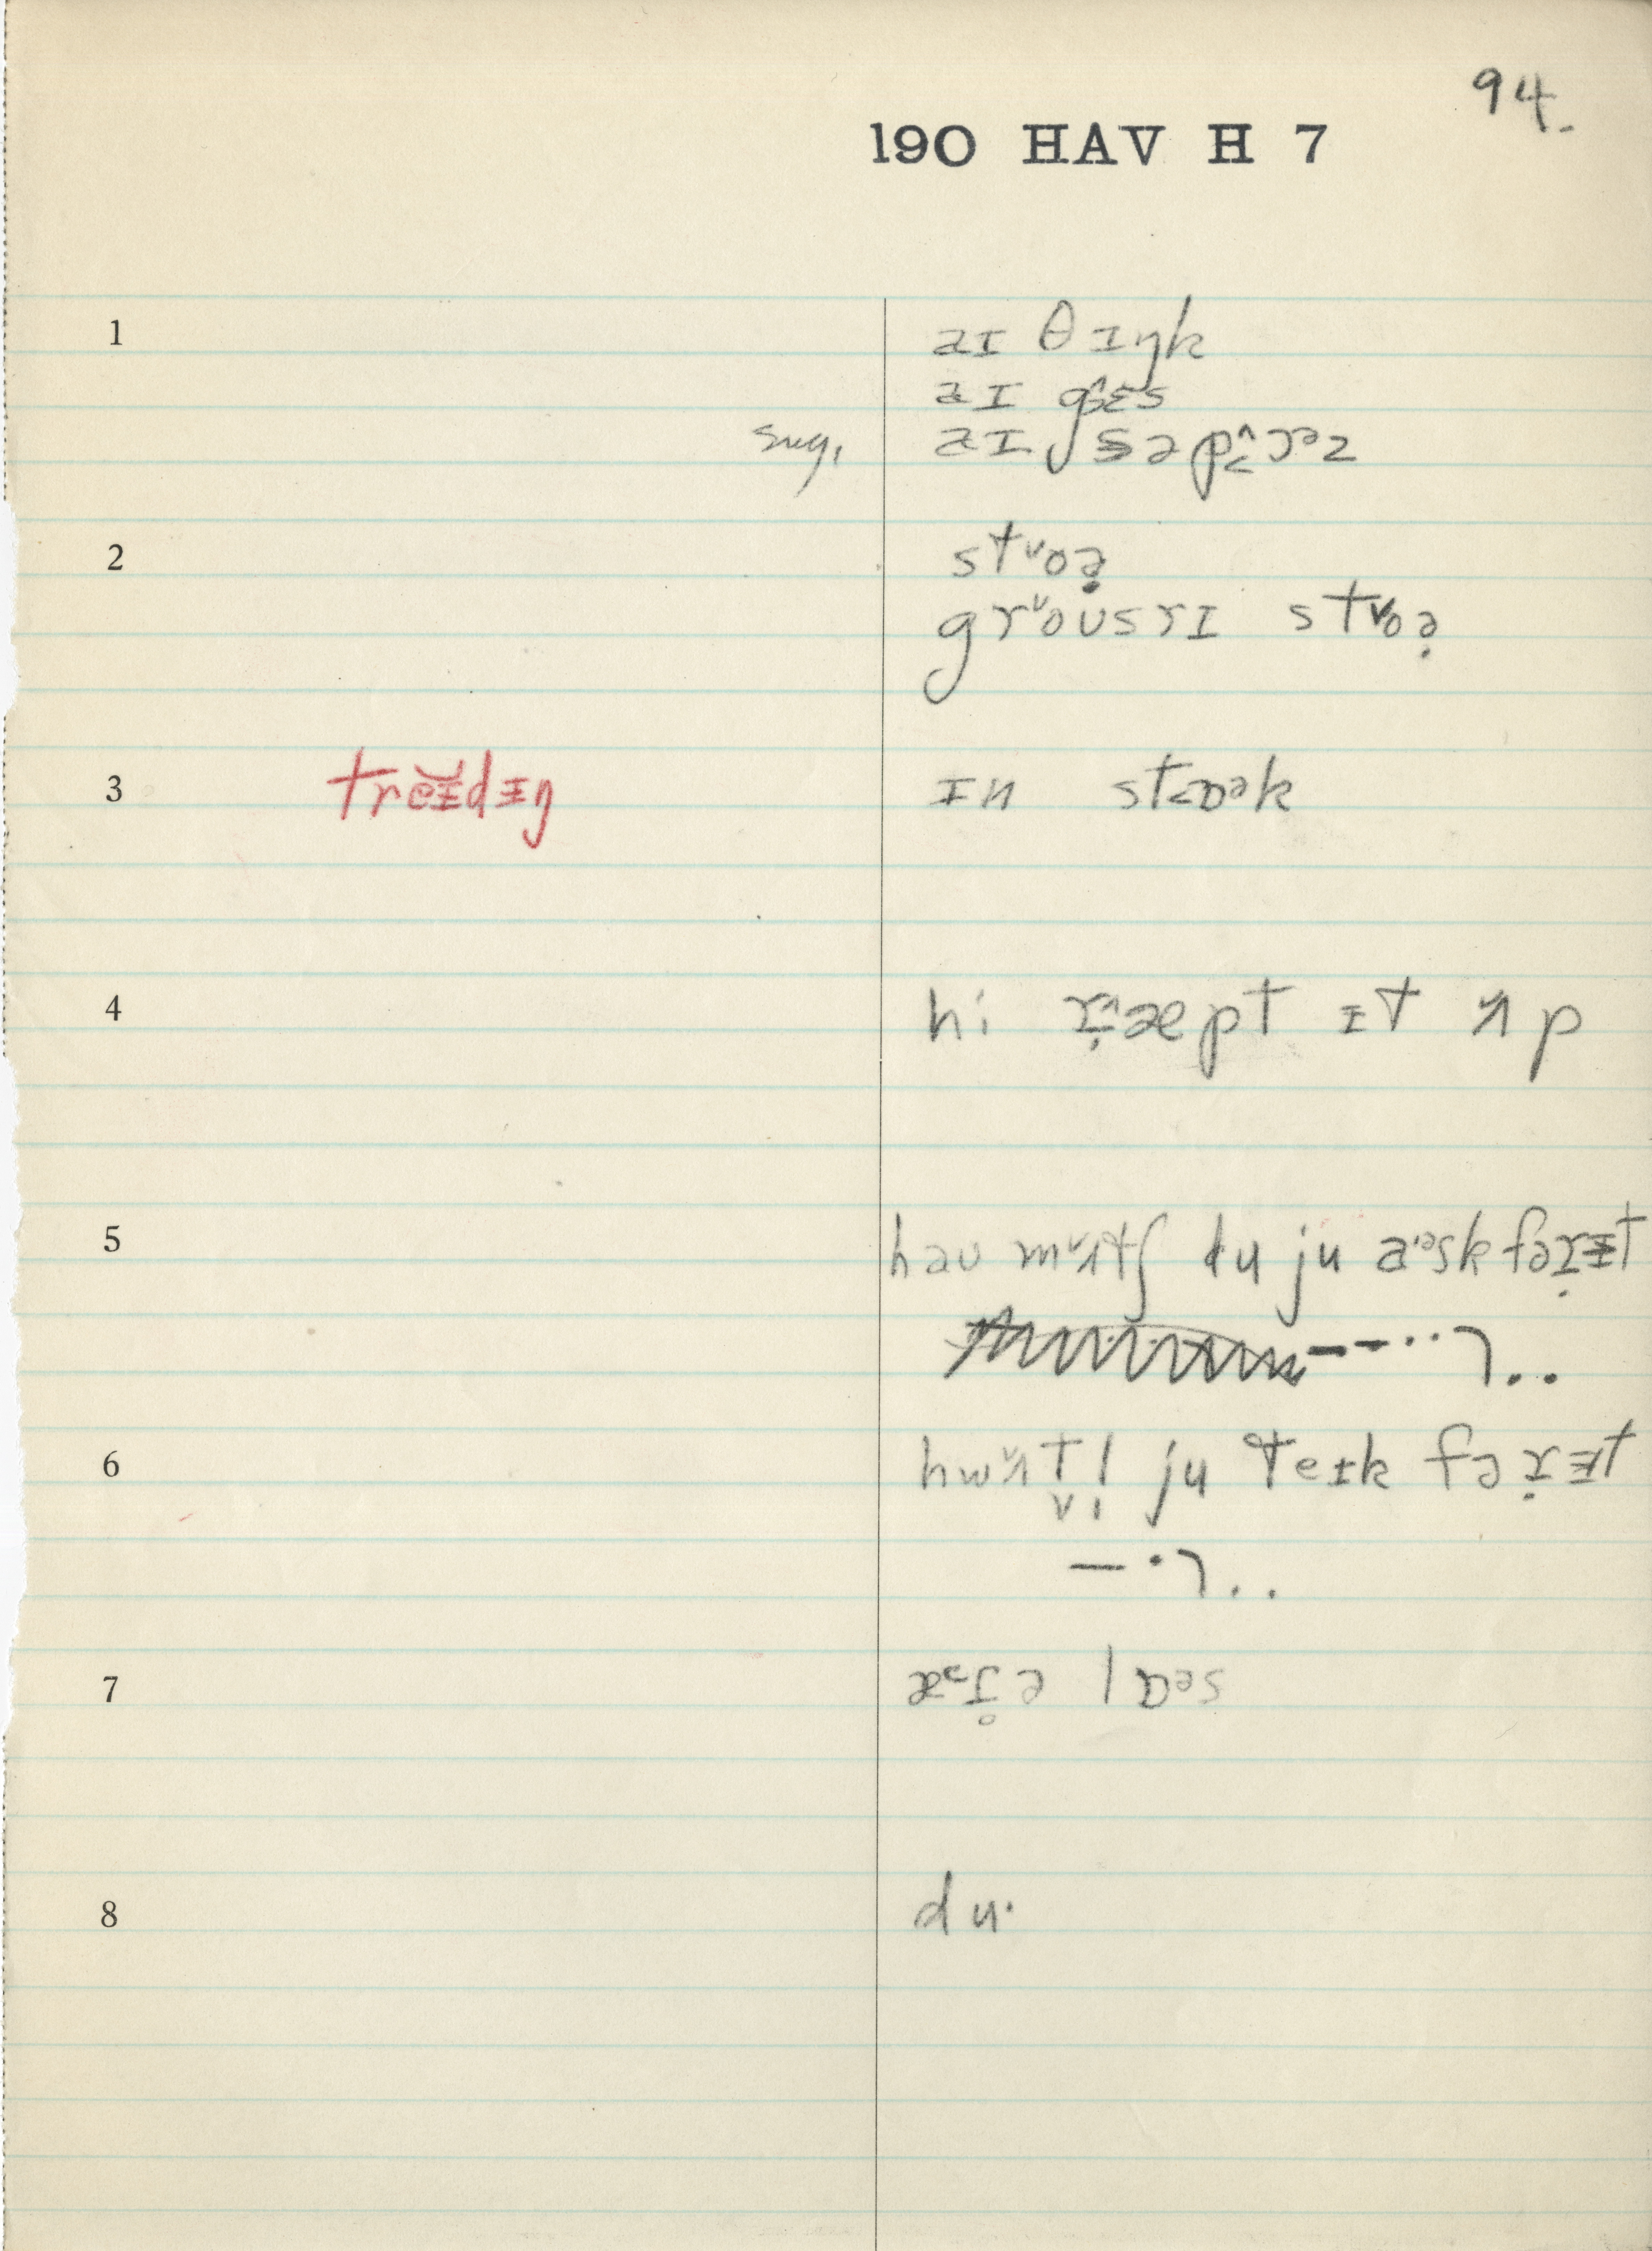 94.
190 HAV H 7
1 aɪ θɪŋk
aɪ gɛ̂s
sug. aɪ səp˂̂ɔᵊz
2 st˅oə̣
gr˅oʊsrɪ st˅oə̣
3 treɪ̆dɪŋ ɪn st˂ɒᵊk
4 hi ræpt ɪt ʌp
5 haʊ mʌtʃ du ju aˑᵊsk fəɪt
6 hwʌt l ju teɪk fəɪt
7 lɒᵊs
8 duˑ